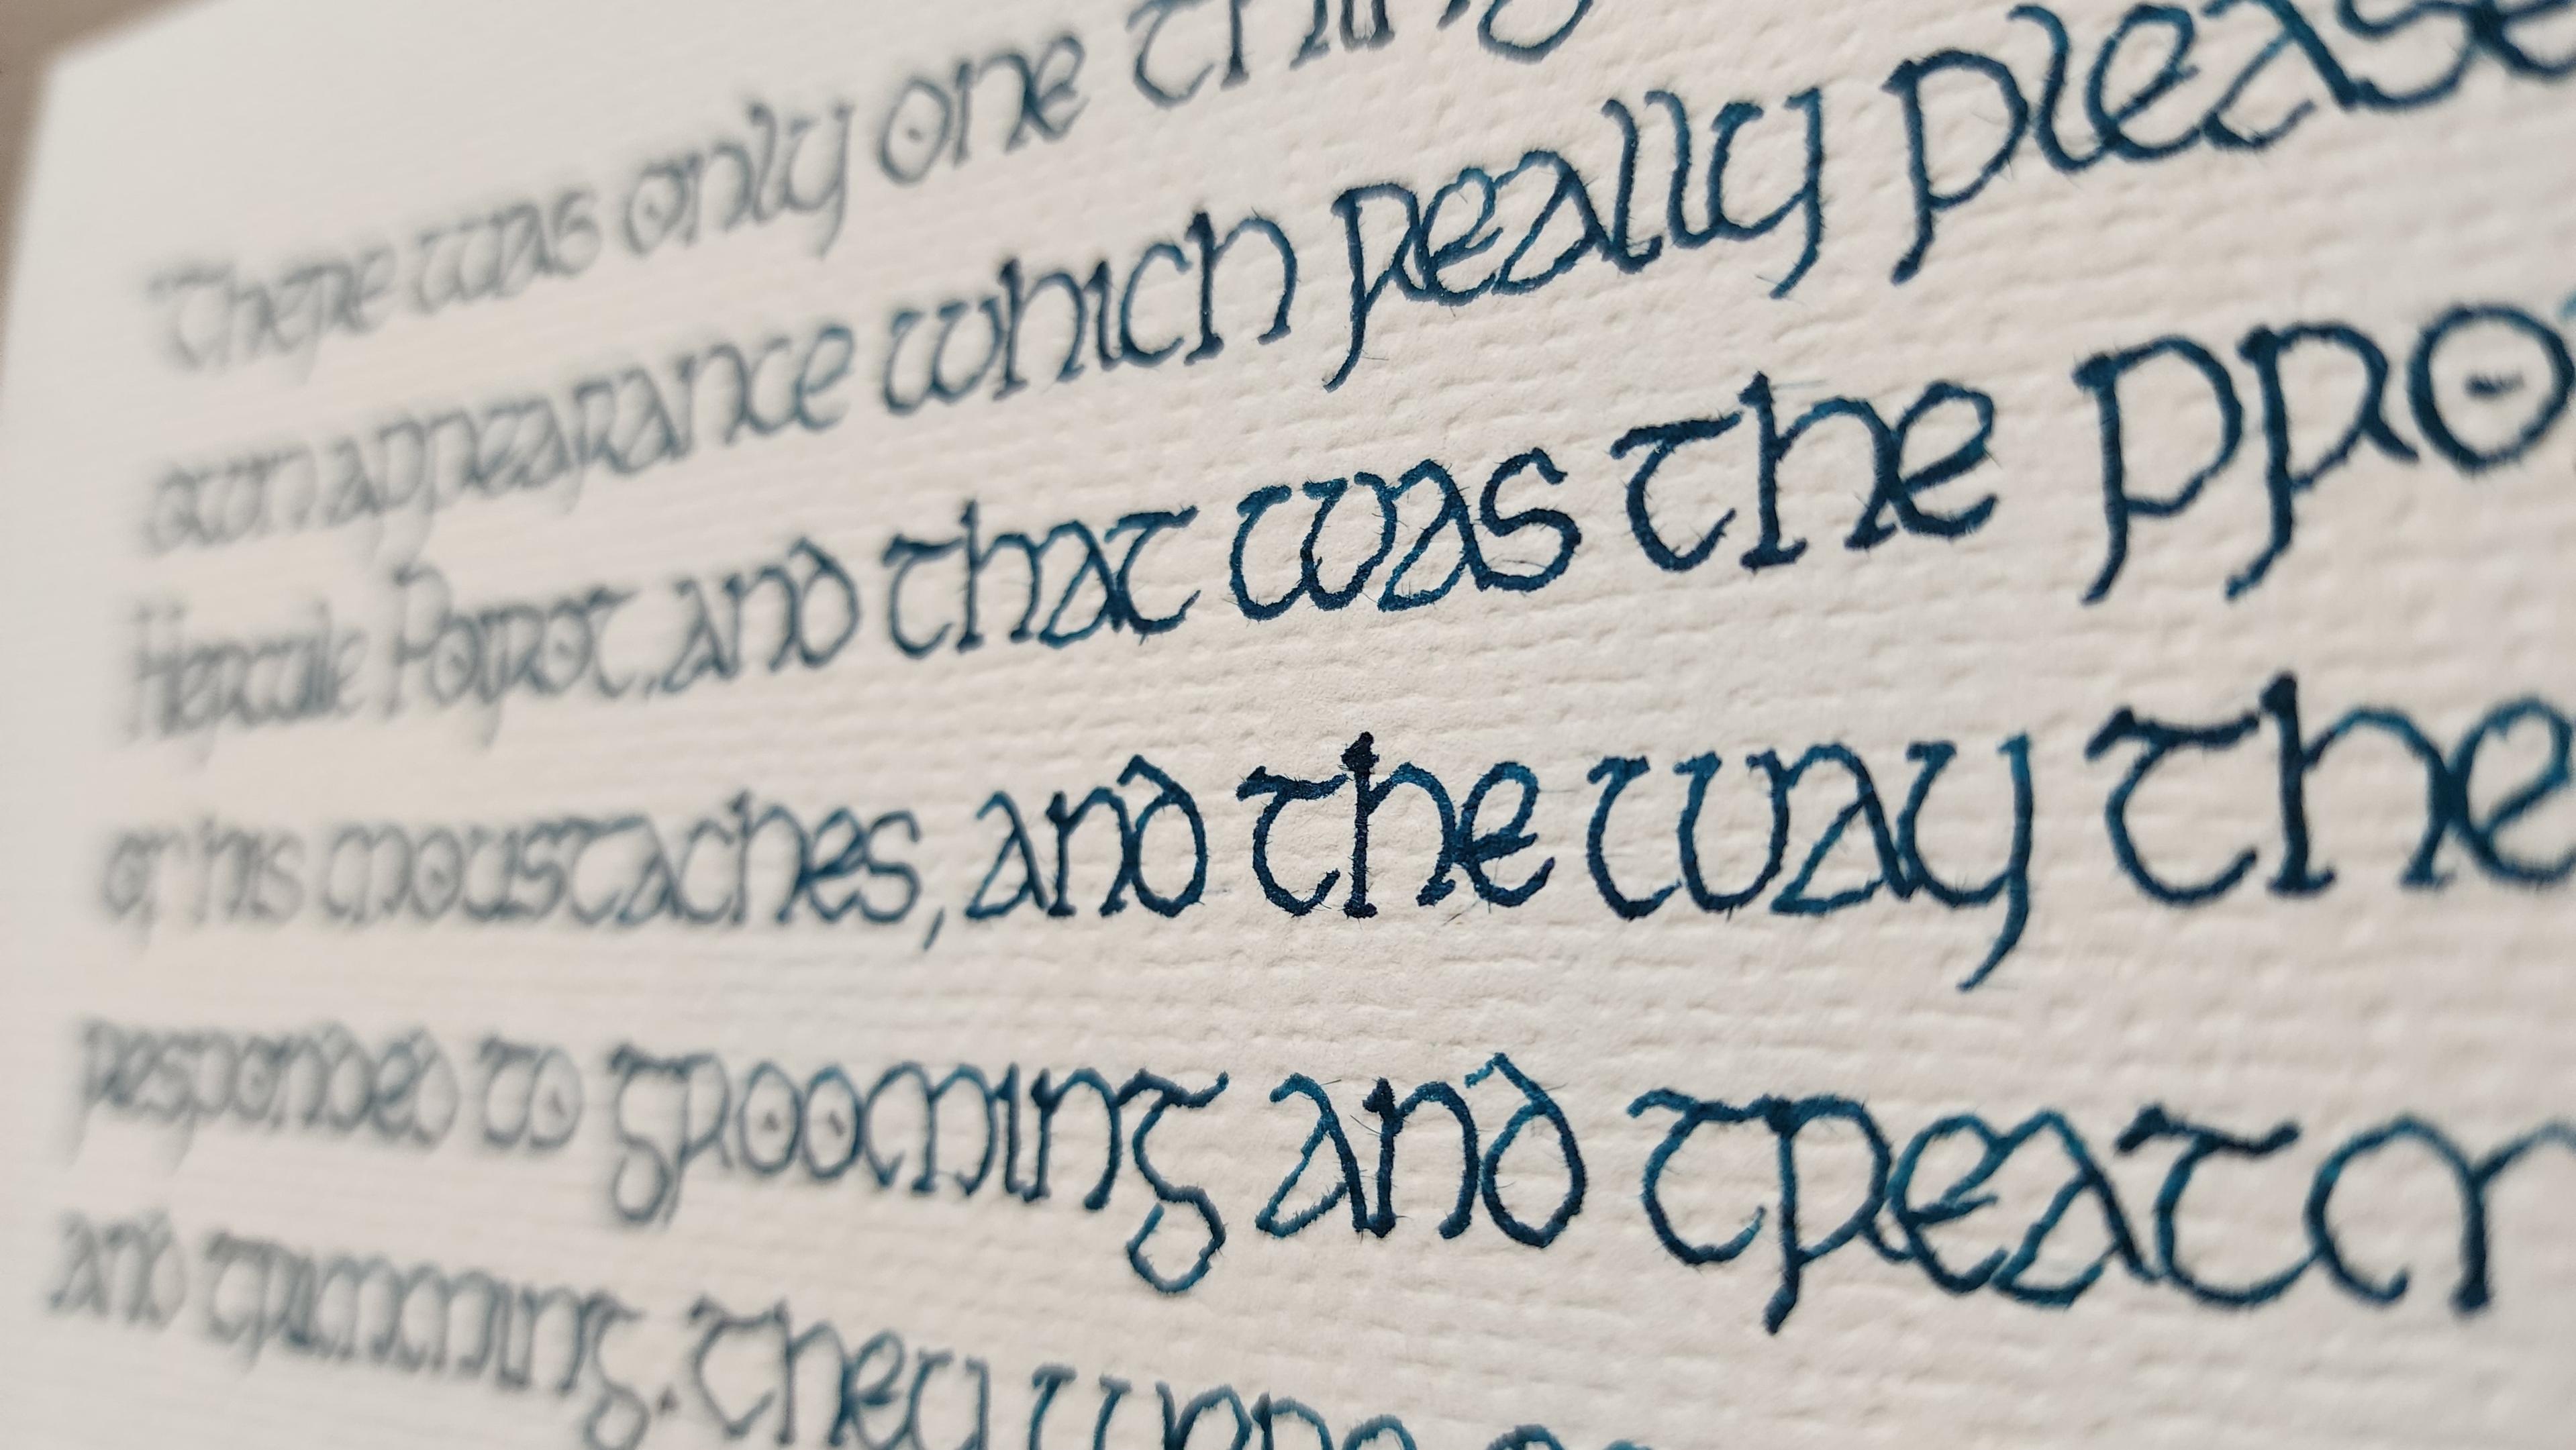 "There was only one thing
own appearance which really please
Hercule Poirot, and that was the pro
of his moustaches, and the way the
responded to grooming and treatm
and trimming. They were